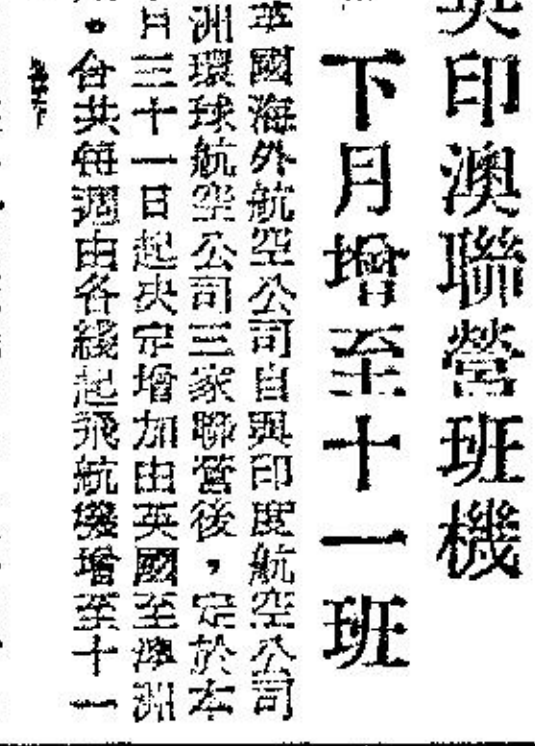 英印澳聯營班機
下月增至十一班
英國海外航空公司自與印度航空公司
洲環球航空公司三家聯營後，定於本
月三十一日起決定增加由英國至澳洲
。合共每週由各綫起飛航機增至十一